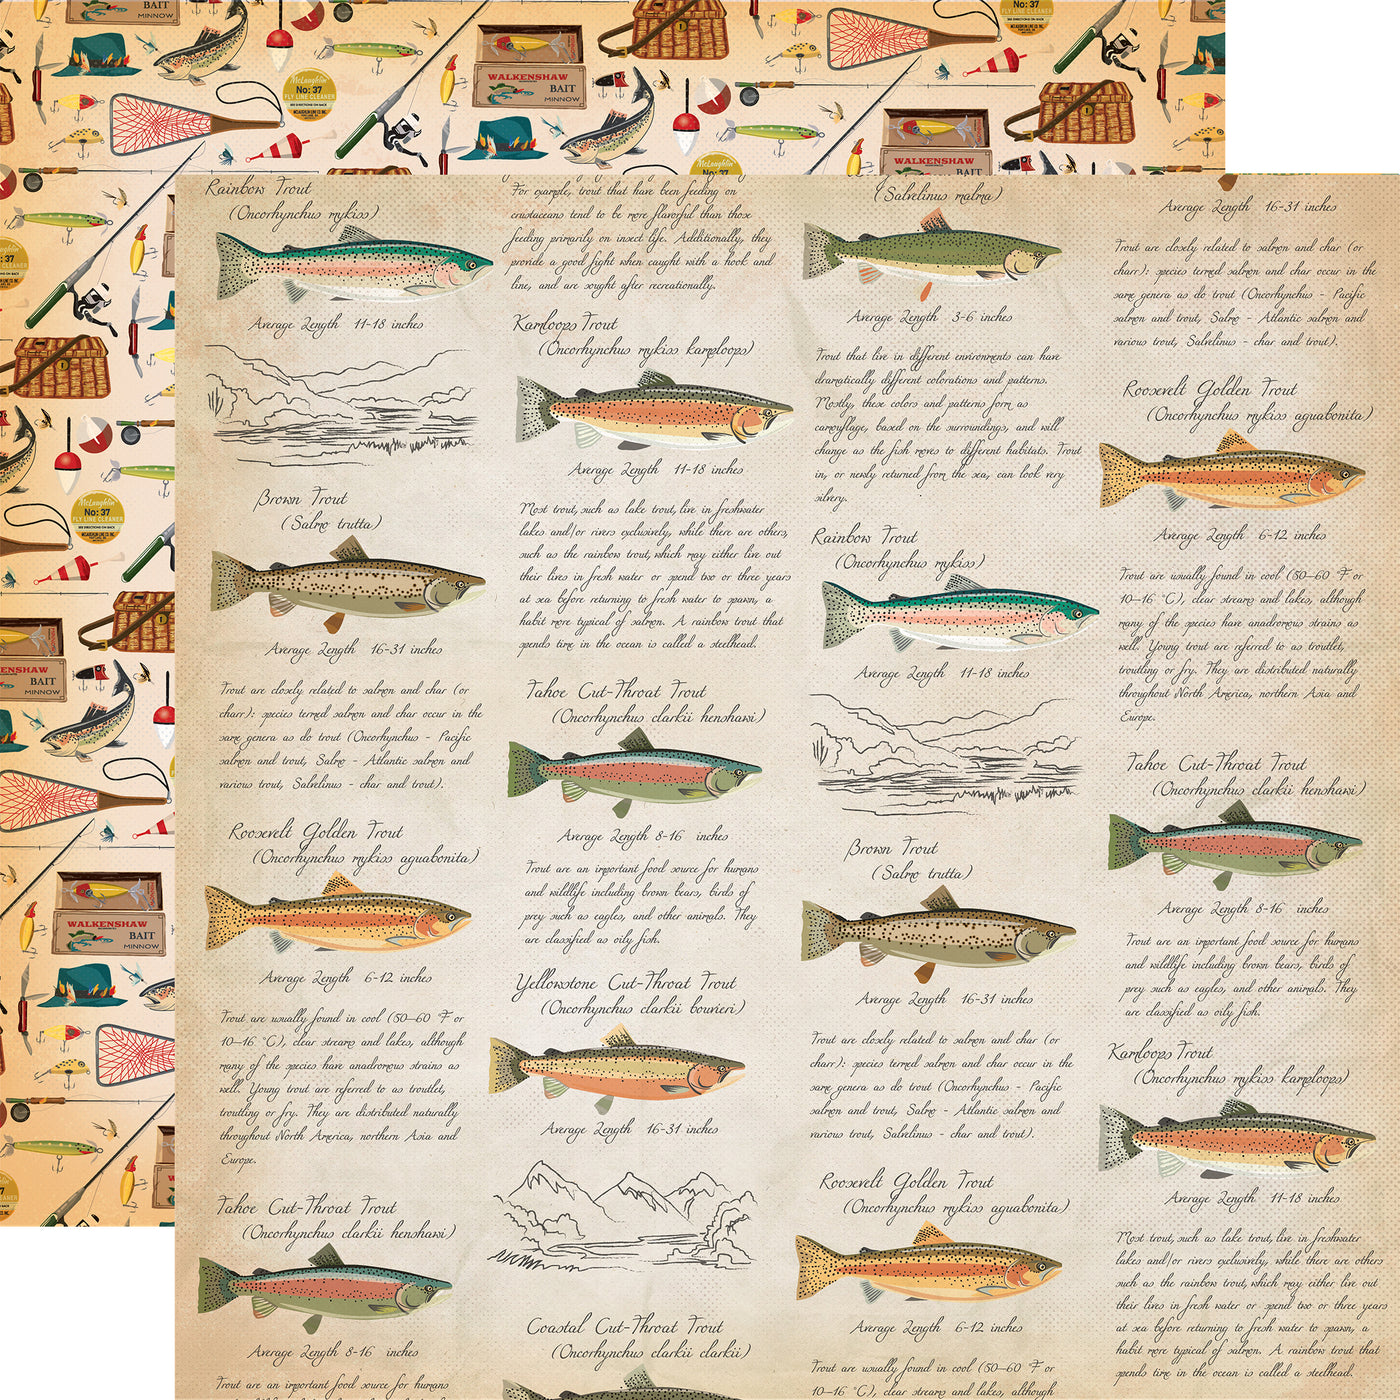 McLaughlin'
No: 37
FLY LINE CLEANER
SEE DIRECTIONS ON BACK
WALKENSHAW
BAIT
MINNOW
No: 37
FLY LINE CLEANER
SEE DIRECTIONS ON BACK
WALKENSHAW
McLaughlin'
No: 37
: 37
CLEANER
McLaughlin'
No: 37
FLY LINE CLEANER
SEE DIRECTIONS ON BACK
KENSHAW
BAIT
MINNOW
WALKENSHAW
BAIT
MINNOW
No: 37
CLEANER
Rainbow Trout
(Oncorhynchus mykiss)
Average Length 11-18 inches
Brown Trout
(Salmo trutta)
Average Length 16-31 inches
Trout are closely related to salmon and char (or
charr): species termed salmon and char occur in the
same genera as do trout (Oncorhynchus - Pacific
salmon and trout, Salmo - Atlantic salmon and
various trout, Salvelinus - char and trout).
Roosevelt Golden Trout
(Oncorhynchus mykiss aguabonita)
Average Length 6-12 inches
Trout are usually found in cool (50–60 °F or
10–16 °C), clear streams and lakes, although
many of the species have anadromous strains as
well. Young trout are referred to as troutlet,
troutling or fry. They are distributed naturally
throughout North America, northern Asia and
Europe.
Tahoe Cut-Throat Trout
(Oncorhynchus clarkii henshawi)
Average Length 8-16 inches
Trout are an important food source for humans
For example, trout that have been feeding on
crustaceans tend to be more flavorful than those
feeding primarily on insect life. Additionally, they
provide a good fight when caught with a hook and
line, and are sought after recreationally.
Kamloops Trout
(Oncorhynchus mykiss kamploops)
Average Length 11-18 inches
Most trout, such as lake trout, live in freshwater
lakes and/or rivers exclusively, while there are others,
such as the rainbow trout, which may either live out
their lives in fresh water or spend two or three years
at sea before returning to fresh water to spawn, a
habit more typical of salmon. A rainbow trout that
spends time in the ocean is called a steelhead.
Tahoe Cut-Throat Trout
(Oncorhynchus clarkii henshawi)
Average Length 8-16 inches
Trout are an important food source for humans
and wildlife including brown bears, birds of
prey such as eagles, and other animals. They
are classified as oily fish.
Yellowstone Cut-Throat Trout
(Oncorhynchus clarkii bouvieri)
Average Length 16-31 inches
Coastal Cut-Throat Trout
(Oncorhynchus clarkii clarkii)
(Salvelinus malma)
Average Length 3-6 inches
Trout that live in different environments can have
dramatically different colorations and patterns.
Mostly, these colors and patterns form as
camouflage, based on the surroundings, and will
change as the fish moves to different habitats. Trout
in, or newly returned from the sea, can look very
silvery.
Rainbow Trout
(Oncorhynchus mykiss)
Average Length 11-18 inches
Brown Trout
(Salmo trutta)
Average Length 16-31 inches
Trout are closely related to salmon and char (or
charr): species termed salmon and char occur in the
same genera as do trout (Oncorhynchus - Pacific
salmon and trout, Salmo - Atlantic salmon and
various trout, Salvelinus - char and trout).
Roosevelt Golden Trout
(Oncorhynchus mykiss aguabonita)
Average Length 6-12 inches
Trout are usually found in cool (50–60 °F or
10–16 °C), clear streams and lakes, although
Average Length 16-31 inches
Trout are closely related to salmon and char (or
charr): species termed salmon and char occur in the
same genera as do trout (Oncorhynchus - Pacific
salmon and trout, Salmo - Atlantic salmon and
various trout, Salvelinus - char and trout).
Roosevelt Golden Trout
(Oncorhynchus mykiss aguabonita)
Average Length 6-12 inches
Trout are usually found in cool (50–60 °F or
10–16 °C), clear streams and lakes, although
many of the species have anadromous strains as
well. Young trout are referred to as troutlet,
troutling or fry. They are distributed naturally
throughout North America, northern Asia and
Europe.
Tahoe Cut-Throat Trout
(Oncorhynchus clarkii henshawi)
Average Length 8-16 inches
Trout are an important food source for humans
and wildlife including brown bears, birds of
prey such as eagles, and other animals. They
are classified as oily fish.
Kamloops Trout
(Oncorhynchus mykiss kamploops)
Average Length 11-18 inches
Most trout, such as lake trout, live in freshwater
lakes and/or rivers exclusively, while there are others
such as the rainbow trout, which may either live out
their lives in fresh water or spend two or three years
at sea before returning to fresh water to spawn, a
habit more typical of salmon. A rainbow trout that
spends time in the ocean is called a steelhead.